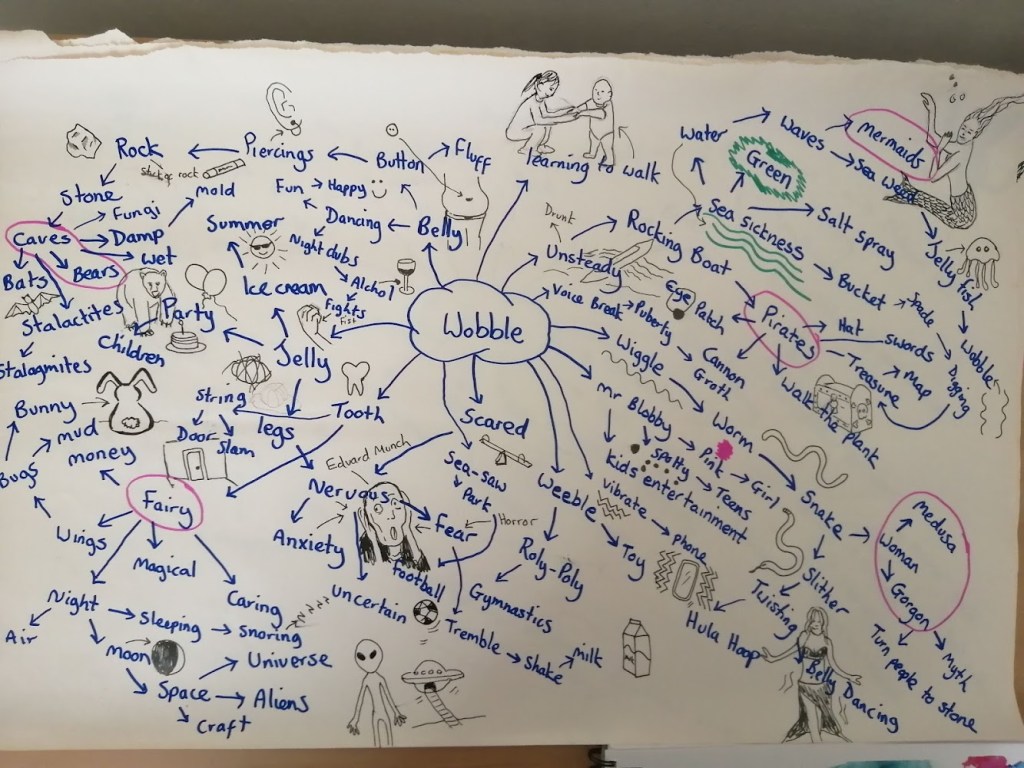 Wobble
learning to walk
Unsteady
Drunt
Rocking
Boat
Sea sickness
Green
water
waves
mermaids
Sea weed
Jelly fish
Wobble
Salt spray
Bucket
Spade
Digging
Pirates
Eye
Patch
Cannon
Hat
swords
Treasure
map
Walk the plank
Voice Break
Puberty
Groth
Wiggle
Worm
Snake
Medusa
Woman
Gorgon
Myth
Turn people to stone
Slither
Twisting
Belly Dancing
Hula Hoop
mr Blobby
Spotty
Pink
Girl
Teens
kids entertainment
Weeble
vibrate
phone
Toy
Roly-Poly
Gymnastics
Sea-saw
Park
Scared
Nervous
Eduard Munch
Anxiety
Uncertain
Fear
Horror
football
Tremble
Shake
milk
Tooth
String
Door
Slam
Fairy
money
Wings
Bugs
mud
Bunny
Magical
Caring
Night
Air
Sleeping
Snoring
zzzzzz
moon
Space
Universe
Aliens
Craft
Jelly
legs
Ice cream
Summer
Party
Children
Belly
Button
Fluff
Piercings
Rock
stick of rock
Stone
Caves
Fungi
Damp
mold
wet
Bears
Bats
Stalactites
Stalagmites
Dancing
Fun
Happy
Night clubs
Alchol
Fights
Fist